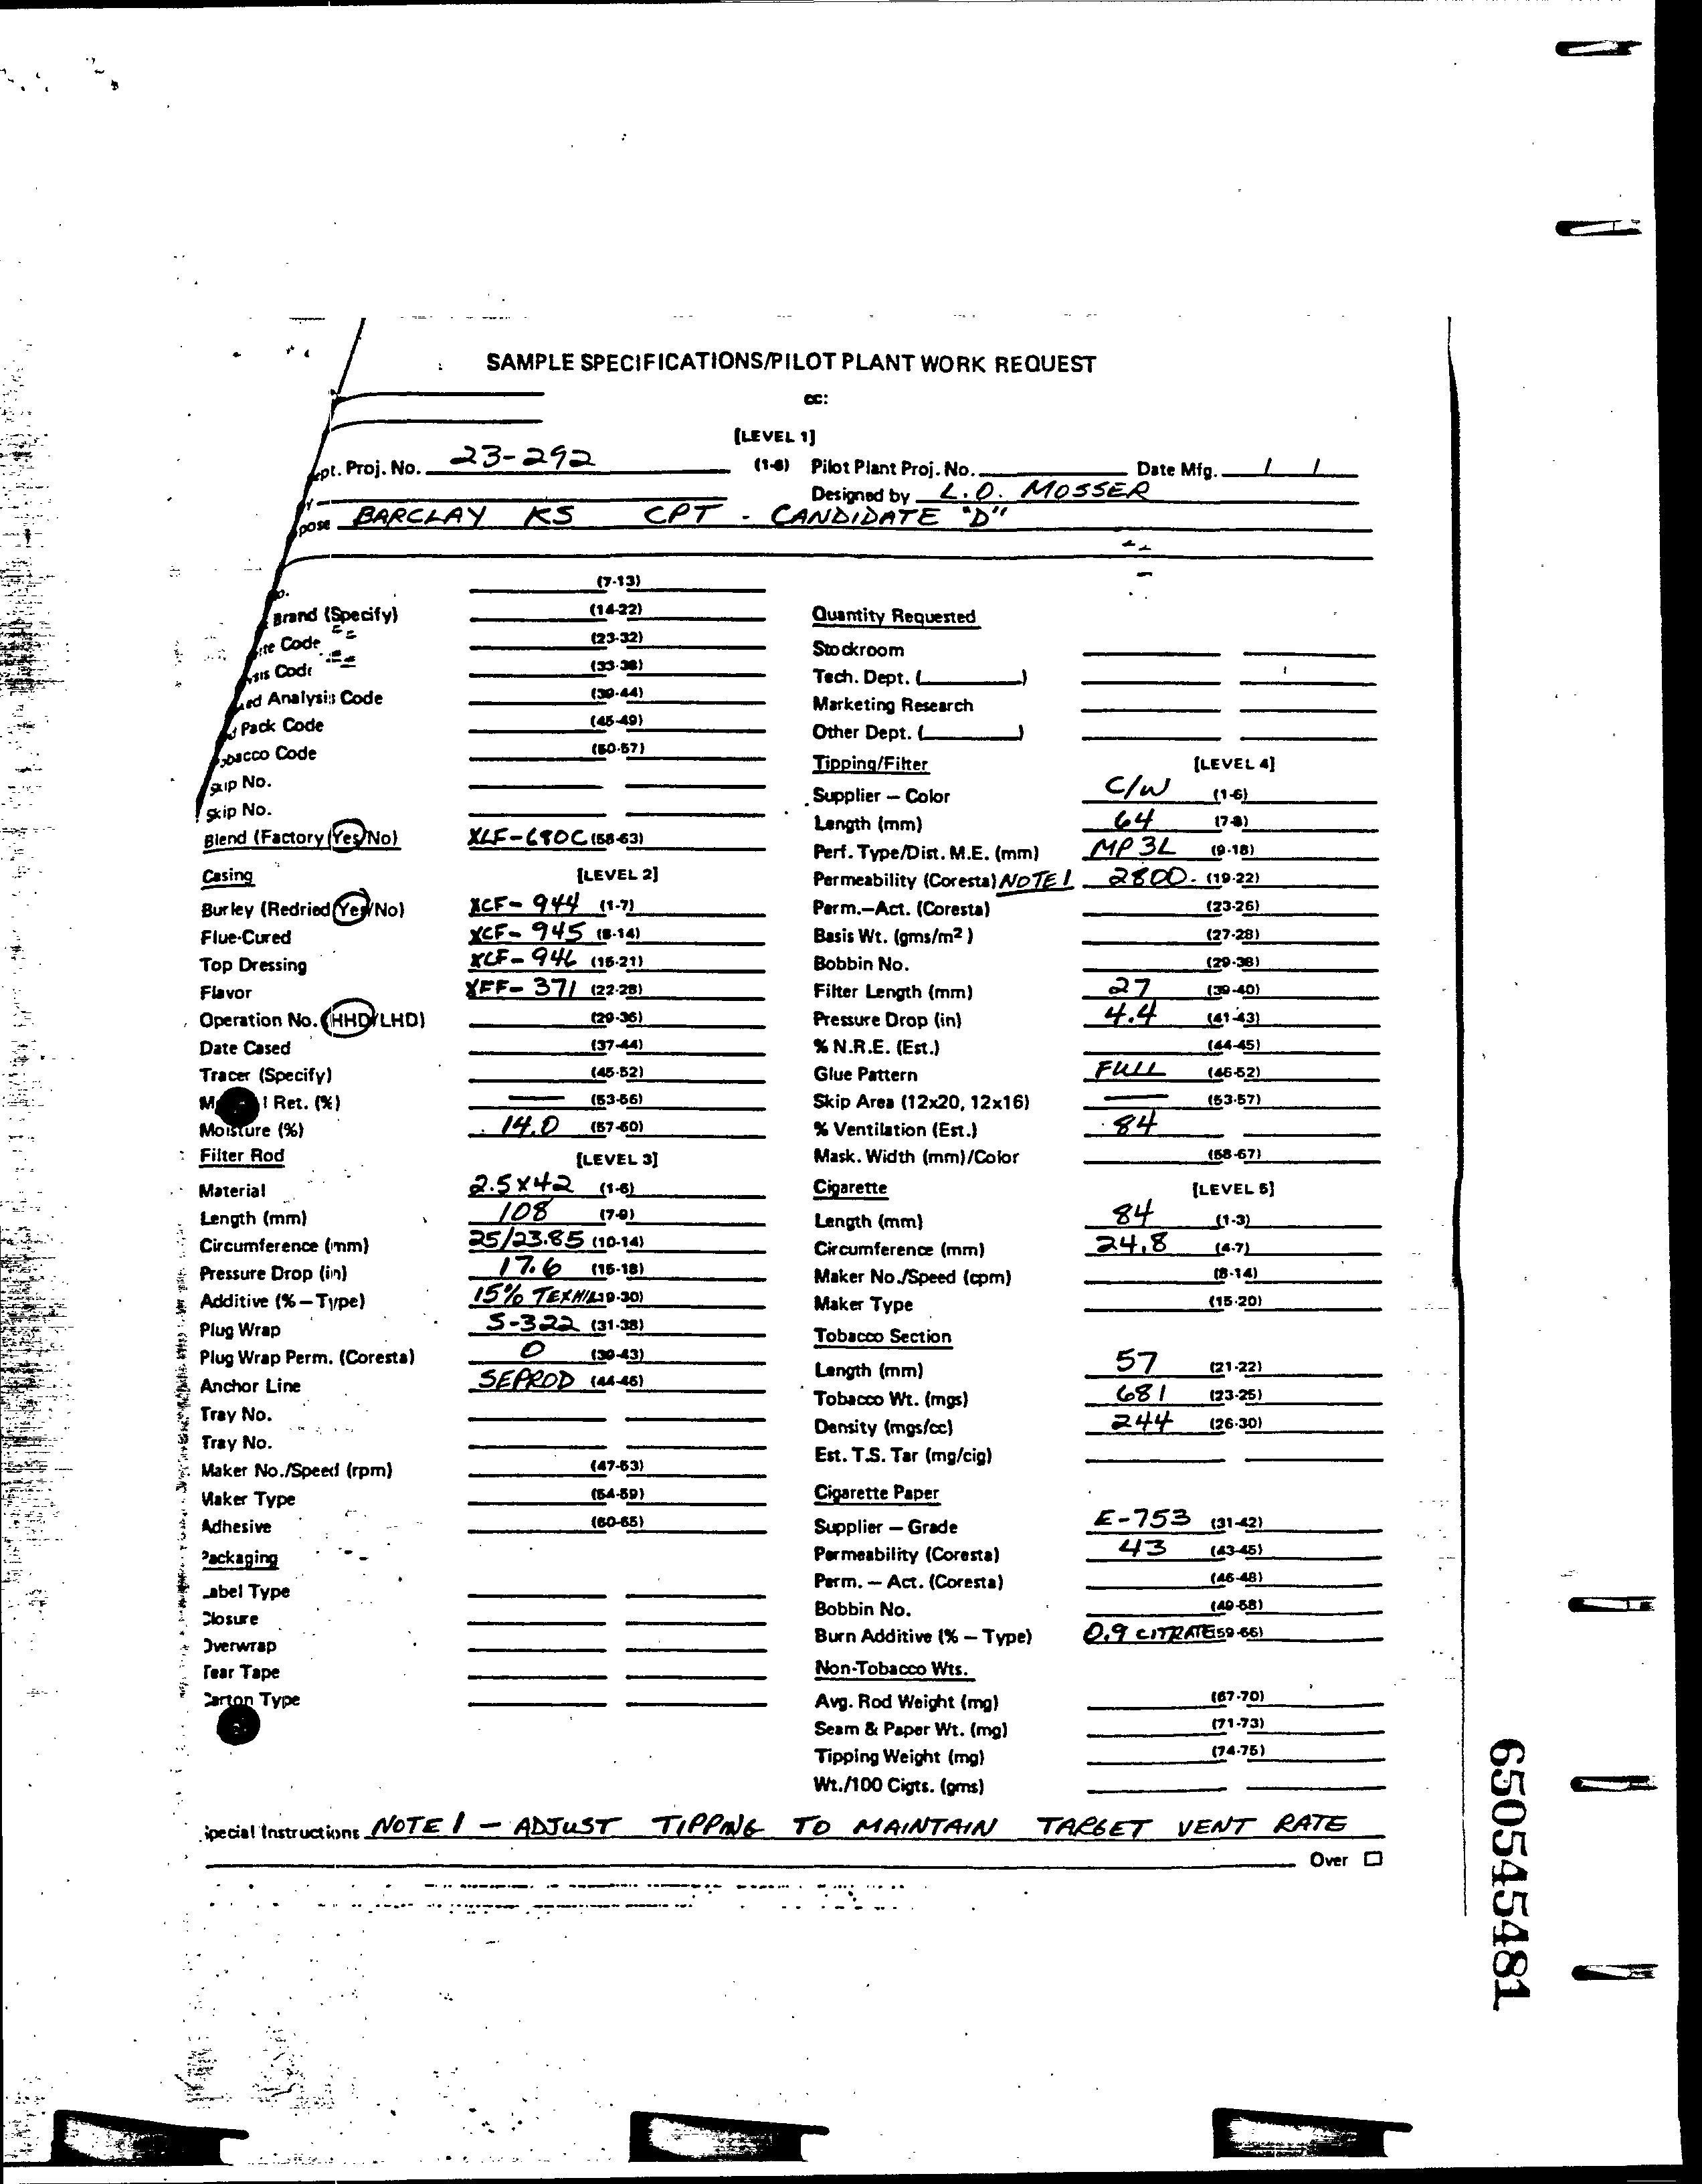 SAMPLE SPECIFICATIONS/PILOT PLANT WORK REQUEST
cc:
[LEVEL 1]
ept. Proj. No. 23-292 (1-6) Pilot Plant Proj. No. Date Mfg. / /
Designed by L.O. MOSSER
pose BARCLAY KS CPT - CANDIDATE "D"
(7-13)
Brand (Specify) (14-22)
Code (23-32)
sis Code (33-38)
ed Analysis Code (39-44)
Pack Code (45-49)
obacco Code (50-57)
Skip No.
Skip No.
Blend (Factory Yes/No) XLF-680C (58-63)
Casing [LEVEL 2]
Burley (Redried Yes/No) XCF-944 (1-7)
Flue-Cured XCF-945 (8-14)
Top Dressing XCF-946 (15-21)
Flavor XFF-371 (22-28)
Operation No. (HHD/LHD) (29-36)
Date Cased (37-44)
Tracer (Specify) (45-52)
Ret. (%) — (53-56)
Moisture (%) 14.0 (57-60)
Filter Rod [LEVEL 3]
Material 2.5X42 (1-6)
Length (mm) 108 (7-9)
Circumference (mm) 25/23.85 (10-14)
Pressure Drop (in) 17.6 (15-18)
Additive (%—Type) 15% 19-30)
Plug Wrap S-322 (31-38)
Plug Wrap Perm. (Coresta) 0 (39-43)
Anchor Line SEPROD (44-46)
Tray No.
Tray No.
Maker No./Speed (rpm) (47-53)
Maker Type (54-59)
Adhesive (60-65)
Packaging
Label Type
Closure
Overwrap
Tear Tape
Carton Type
Quantity Requested
Stockroom
Tech. Dept. ( )
Marketing Research
Other Dept. ( )
Tipping/Filter [LEVEL 4]
Supplier — Color C/W (1-6)
Length (mm) 64 (7-8)
Perf. Type/Dist. M.E. (mm) MP 3L (9-18)
Permeability (Coresta) NOTE 1 2800. (19-22)
Perm.—Act. (Coresta) (23-26)
Basis Wt. (gms/m²) (27-28)
Bobbin No. (29-38)
Filter Length (mm) 27 (39-40)
Pressure Drop (in) 4.4 (41-43)
% N.R.E. (Est.) (44-45)
Glue Pattern FULL (46-52)
Skip Area (12x20, 12x16) — (53-57)
% Ventilation (Est.) 84
Mask. Width (mm)/Color (58-67)
Cigarette [LEVEL 5]
Length (mm) 84 (1-3)
Circumference (mm) 24.8 (4-7)
Maker No./Speed (cpm) (8-14)
Maker Type (15-20)
Tobacco Section
Length (mm) 57 (21-22)
Tobacco Wt. (mgs) 681 (23-25)
Density (mgs/cc) 244 (26-30)
Est. T.S. Tar (mg/cig)
Cigarette Paper
Supplier — Grade E-753 (31-42)
Permeability (Coresta) 43 (43-45)
Perm. — Act. (Coresta) (46-48)
Bobbin No. (49-58)
Burn Additive (% — Type) 0.9 CITRATE 59-66)
Non-Tobacco Wts.
Avg. Rod Weight (mg) (67-70)
Seam & Paper Wt. (mg) (71-73)
Tipping Weight (mg) (74-75)
Wt./100 Cigts. (gms)
Special Instructions NOTE 1 — ADJUST TIPPING TO MAINTAIN TARGET VENT RATE
Over
650545481